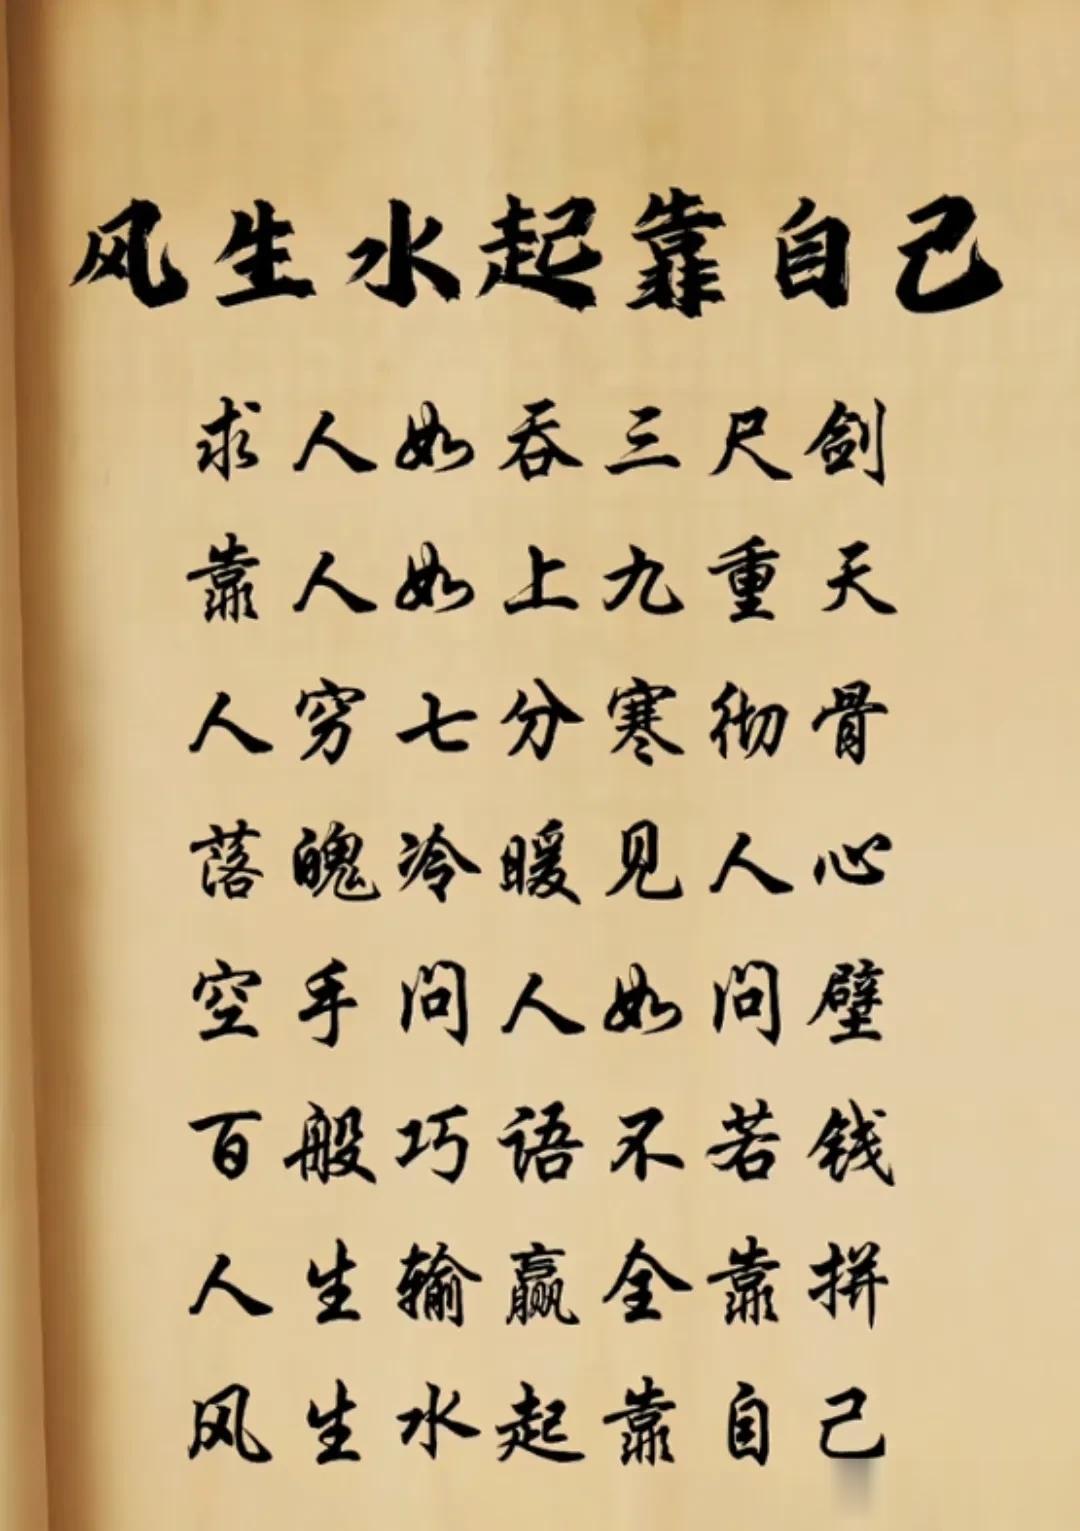 风生水起靠自己
求人如吞三尺剑
靠人如上九重天
人穷七分寒彻骨
落魄冷暖见人心
空手问人如问壁
百般巧语不若钱
人生输赢全靠拼
风生水起靠自己